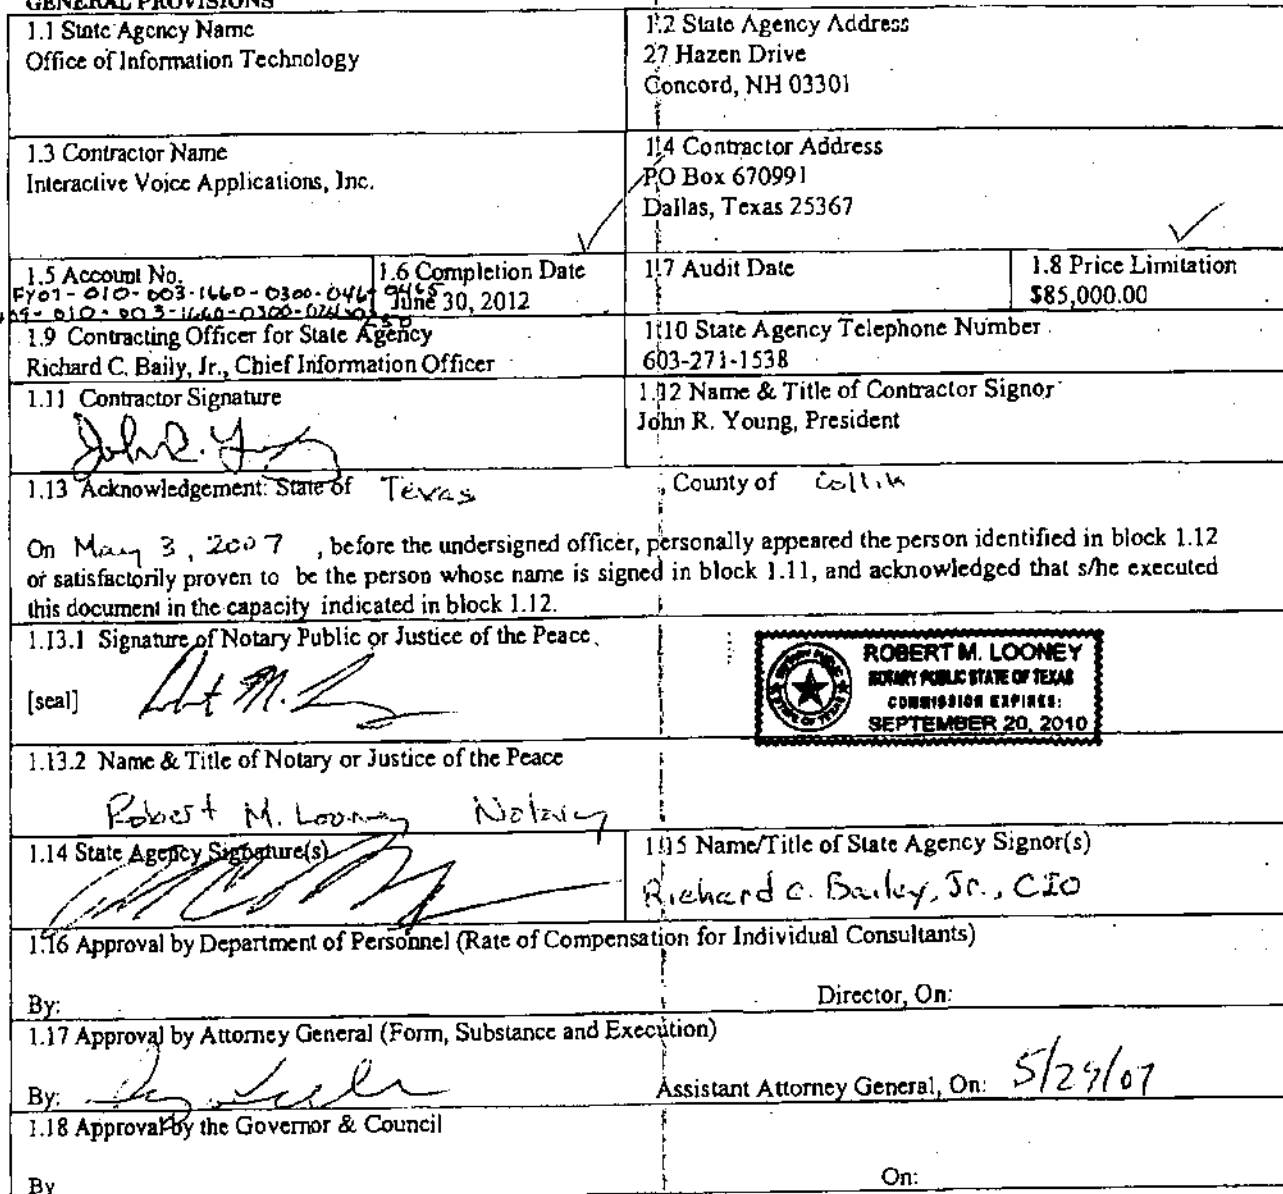 GENERAL PROVISIONS
1.1 State Agency Name
Office of Information Technology
1.2 State Agency Address
27 Hazen Drive
Concord, NH 03301
1.3 Contractor Name
Interactive Voice Applications, Inc.
1.4 Contractor Address
PO Box 670991
Dallas, Texas 25367
1.5 Account No.
FY07-010-003-1660-0300-0464 0465
09-010-003-1660-0300-024
1.6 Completion Date
June 30, 2012
1.7 Audit Date
1.8 Price Limitation
$85,000.00
1.9 Contracting Officer for State Agency
Richard C. Baily, Jr., Chief Information Officer
1.10 State Agency Telephone Number
603-271-1538
1.11 Contractor Signature
John R. Young
1.12 Name & Title of Contractor Signor
John R. Young, President
1.13 Acknowledgement: State of Texas , County of Collin
On May 3, 2007 , before the undersigned officer, personally appeared the person identified in block 1.12
or satisfactorily proven to be the person whose name is signed in block 1.11, and acknowledged that s/he executed
this document in the capacity indicated in block 1.12.
1.13.1 Signature of Notary Public or Justice of the Peace
[seal]
ROBERT M. LOONEY
NOTARY PUBLIC STATE OF TEXAS
COMMISSION EXPIRES:
SEPTEMBER 20, 2010
1.13.2 Name & Title of Notary or Justice of the Peace
Robert M. Looney Notary
1.14 State Agency Signature(s)
1.15 Name/Title of State Agency Signor(s)
Richard C. Bailey, Jr., CIO
1.16 Approval by Department of Personnel (Rate of Compensation for Individual Consultants)
By: Director, On:
1.17 Approval by Attorney General (Form, Substance and Execution)
By: Assistant Attorney General, On: 5/29/07
1.18 Approval by the Governor & Council
By On: